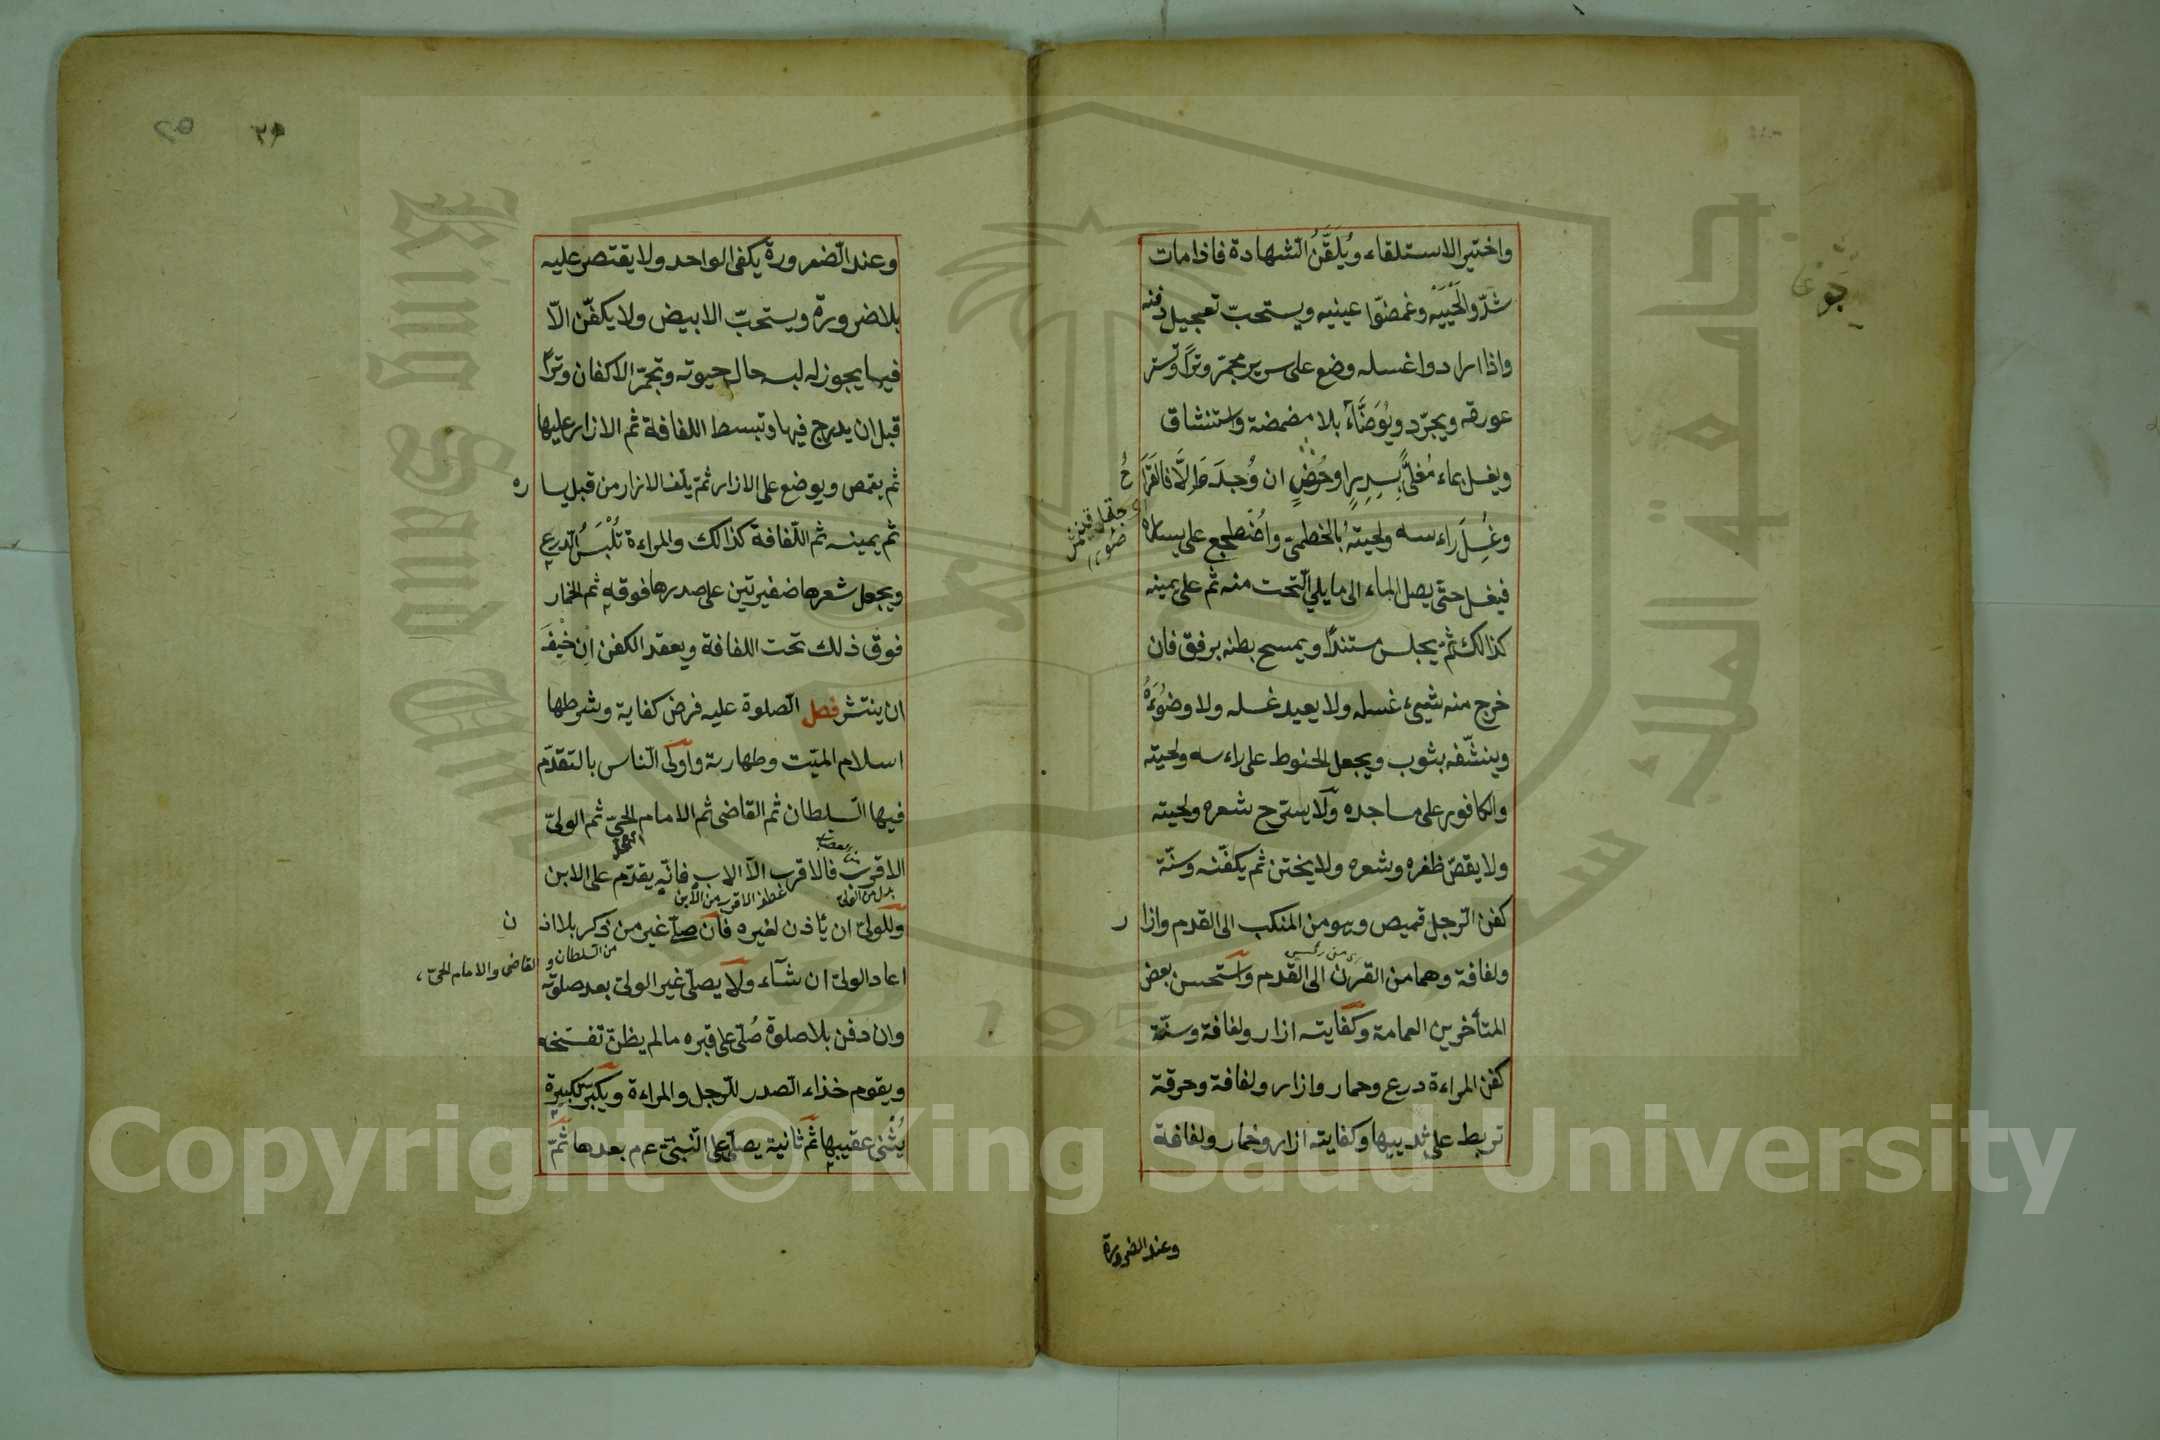 واختير الاستلقاء ويُلَقَّنُ الشهادة فاذا مات
شدّوا لَحْيَيْه وغمضّوا عينيه ويستحبّ تعجيل دفنه
واذا ارادوا غسله وضع على سرير مجمّر وترًا وتستر
عورته ويجرّد ويُوَضَّأ بلا مضمضة واستنشاق
ويغسل بماء مُغلًى بِسِدِرٍ او حُرُضٍ ان وُجدَ وَاِلَّا فالقَرَا
حُ
وغُسِلَ راءسه ولحيتهُ بالخطمىّ واضْطجع على يساره
فيغسل حتى يصل الماء الى ما يلي التّحت منه ثم على يمينه
كذالك ثمّ يجلس مستندًا ويمسح بطنه برفق فان
خرج منه شيىء غسله ولا يعيد غسله ولا وضُوَءَهُ
وينشّفه بثوب ويجعل الحنوط على راءسه ولحيته
والكافور على مساجده ولا يسترح شعره ولحيته
ولا يقصّ ظفره وشعره ولا يختن ثم يكفّنه وسنّة
كفن الرّجل قميص وهو من المنكب الى القدم وازا
ر
ولفافة وهما من القرن الى القدم واستحسن بعض
المتأخرين العمامة وكفايته ازار ولفافة وسنّة
كفن المراءة درع وخمار وازار ولفافة وخرقة
تربط على ثدييها وكفايته ازار وخمار ولفافة
وعند الضرورة
٣٩
وعند الضّرورة يكفى الواحد ولا يقتصر عليه
بلا ضرورة ويستحبّ الابيض ولا يكفّن الّا
فيما يجوز له لبسه حال حيوته وتجمّر الاكفان وترًا
قبل ان يدرج فيها وتبسط اللفافة ثم الازار عليها
ثم يقمص ويوضع على الازار ثمّ يلف الازار من قبل يسا
ره
ثم يمينه ثم اللّفافة كذالك والمراءة تُلْبَسُ الدّرع
ويجعل شعرها ضفيرتين على صدرها فوقه ثم الخمار
فوق ذلك تحت اللفافة ويعقد الكفن اِن خْيفَ
ان ينتشر فصل الصّلوة عليه فرض كفاية وشرطها
اسلام الميّت وطهارته واَولَى النّاس بالتقدّم
فيها السّلطان ثم القاضى ثم الامام الحىّ ثم الولىّ
الاقرب فالاقرب الّا الاب فانّه يقدّم على الابن
بدل من الولى
عطف الاقرب من الابن
وللولىّ ان يأذن لغيره فان صلّى غير من ذكر بلا اذ
ن
من السّلطان و القاضى والامام الحىّ
اعاد الولىّ ان شآء ولا يصلّى غير الولىّ بعد صلوته
وان دفن بلا صلوة صُلّى على قبره ما لم يظنّ تفسّخه
ويقوم حذاء الصّدر للرّجل والمراءة ويكبّر تكبيرة
يُثْنى عقيبها ثم ثانية يصلّى على النّبىّ ع م بعدها ثمّ
Copyright © King Saud University
King Saud University
جامعة الملك سعود
1957